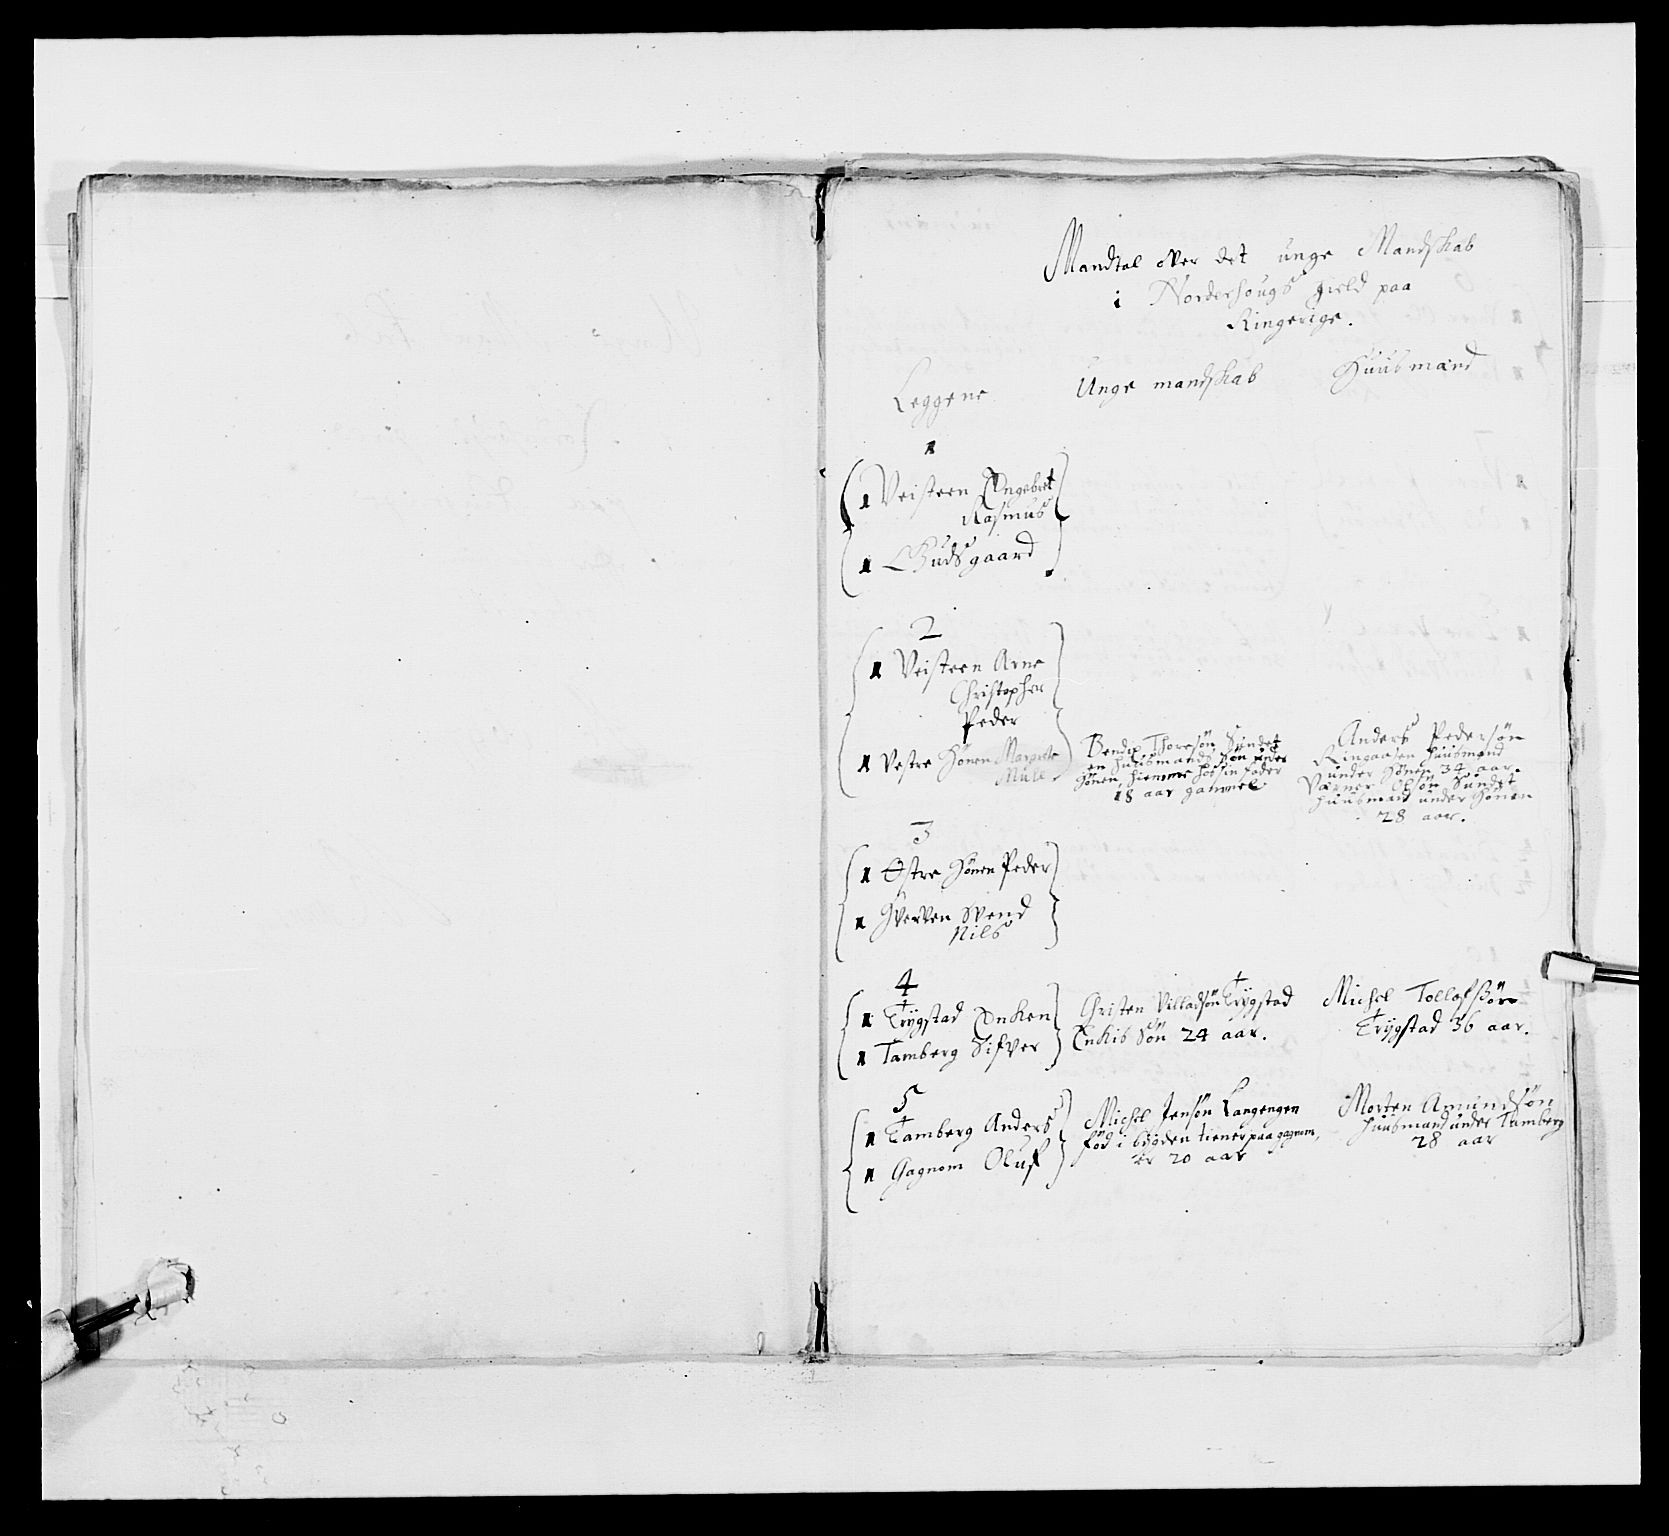 Mandtal over det unge Mandskab
i Norderhougs gield paa
Ringerige.
Leggene Unge mandskab Huusmænd
1
1 Veisteen Engebret
Rasmus
1 Gudsgaard
2
1 Veisteen Arne
Christopher
Peder
1 Vestre Hønen Margrete
Mule
Bendix Thoresøn Sundet
en huusmands søn under
Hønen, hiemme hos sin fader
18 aar gammel
Anders Pedersøn
Ringaasen huusmand
under Hønen 34 aar.
Værner Olsøn Sundet
huusmand under Hønen
28 aar.
3
1 Østre Hønen Peder
1 Hverven Svend
Nils
4
1 Trygstad Enken
1 Tamberg Sifver
Christen Villadsøn Trygstad
Enkis Søn 24 aar.
Michel Tollofsøn
Trygstad 36 aar.
5
1 Tamberg Anders
1 Gagnom Oluf
Michel Jensøn Langengen
fød i bøyden tiener paa gagnom,
er 20 aar
Morten Amundsøn
huusmand under Tamberg
28 aar